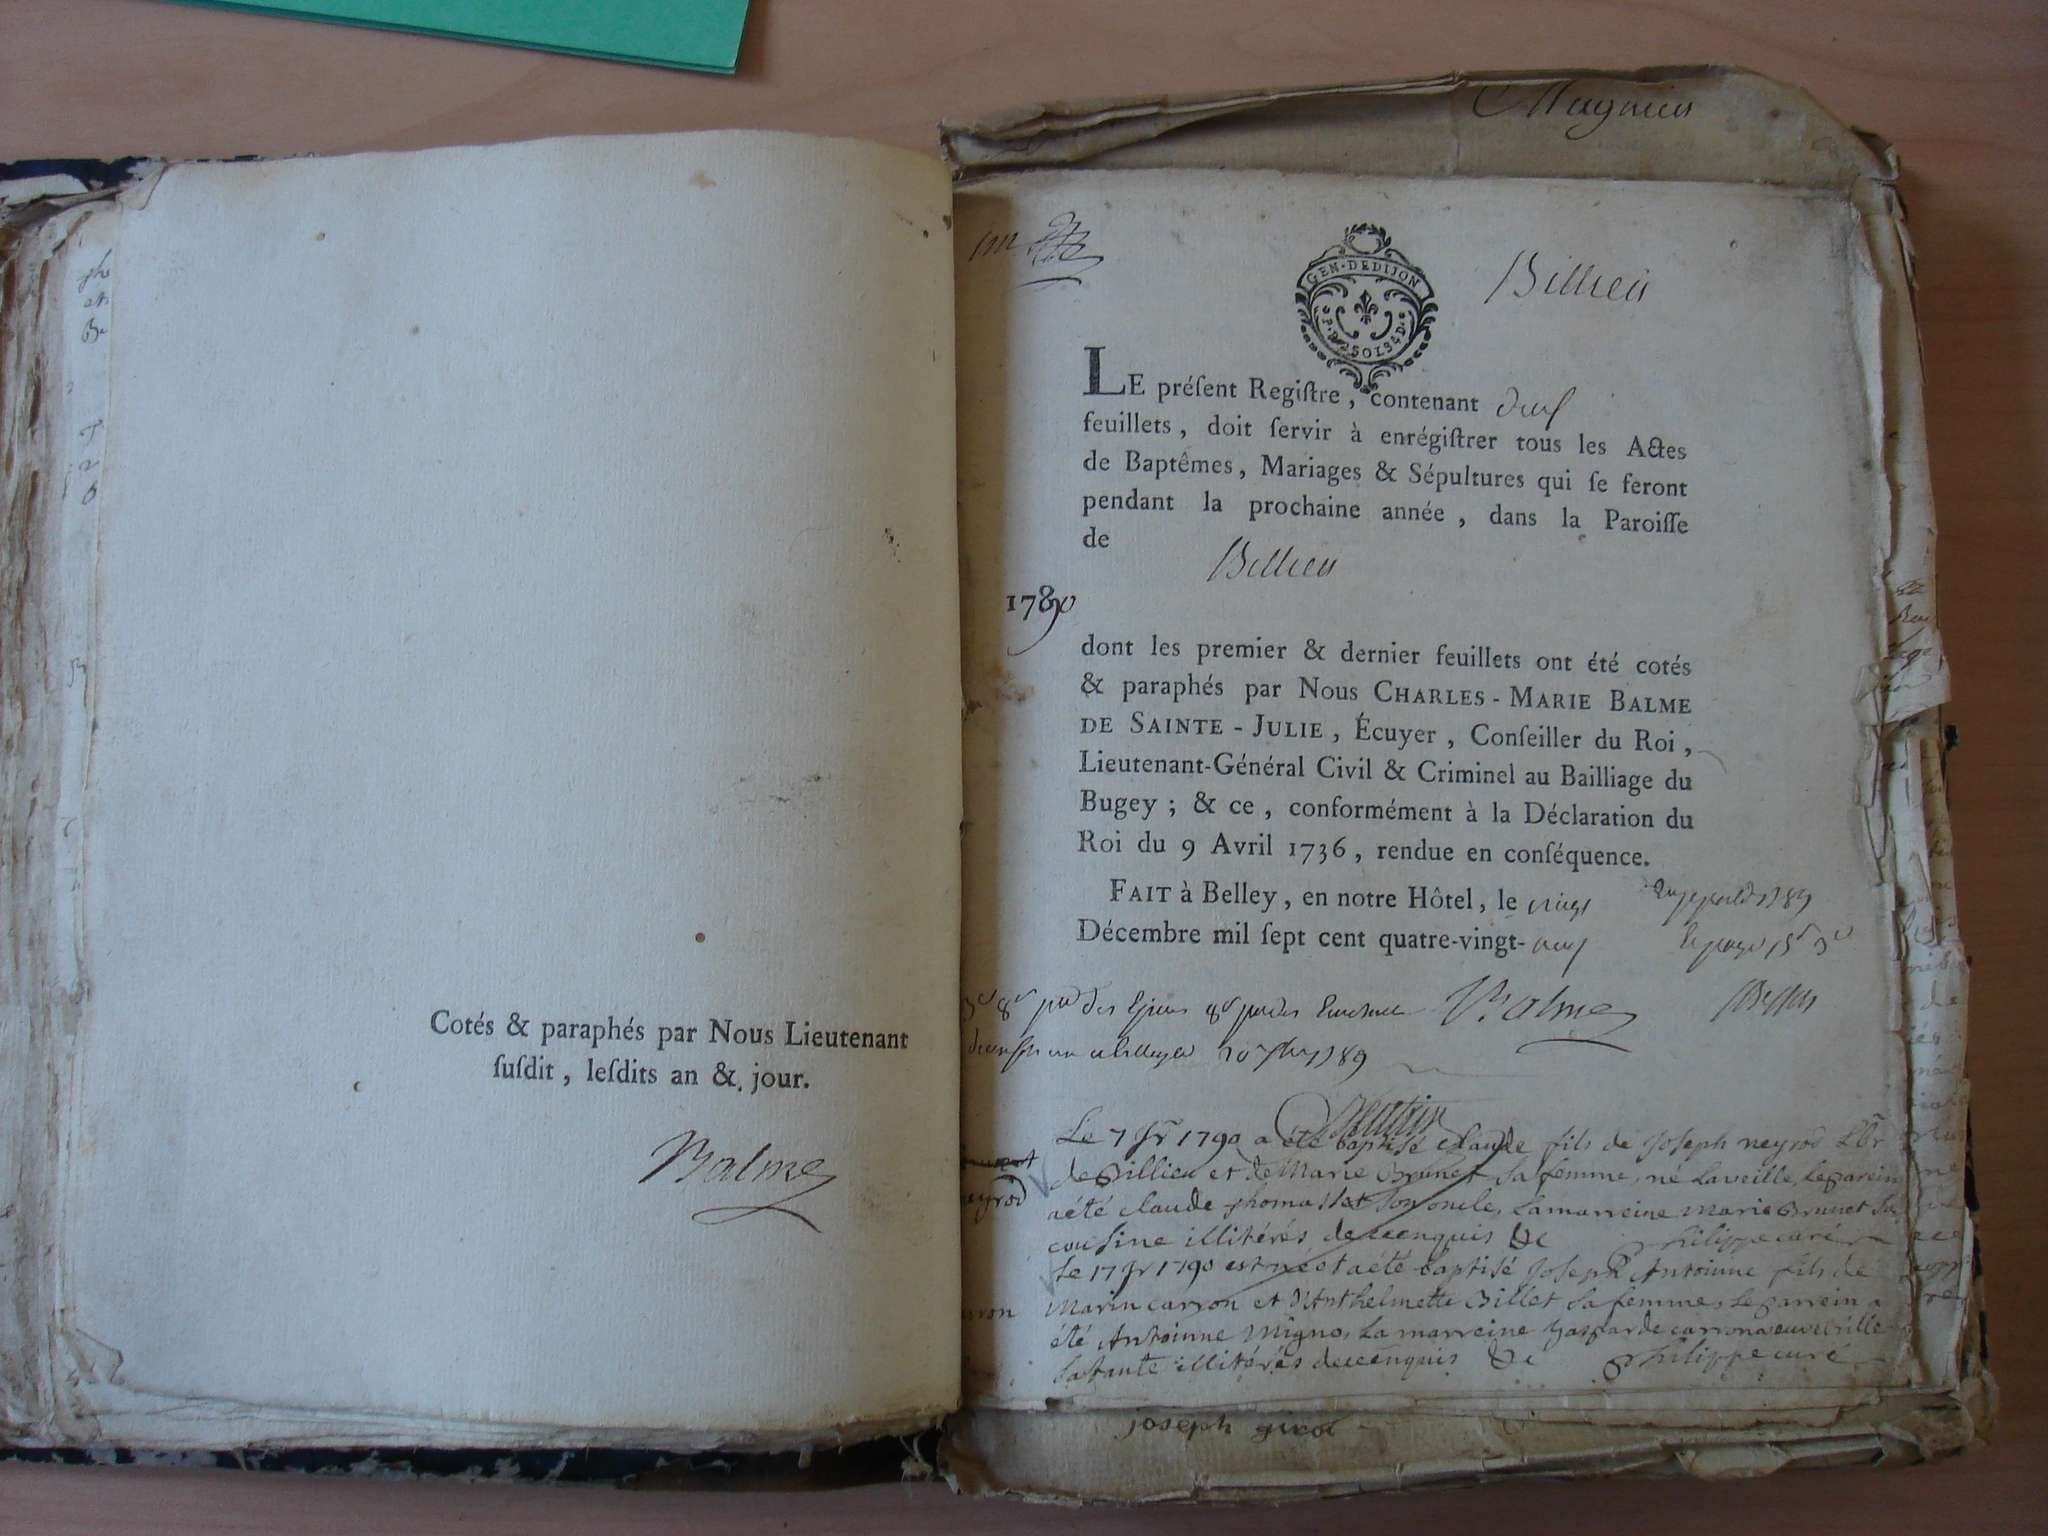 Cotés & paraphés par Nous Lieutenant
ſuſdit, leſdits an & jour.
Balme
Magnieu
Billieu
GEN-DEDIJON
LE préſent Regiſtre, contenant
feuillets, doit ſervir à enrégiſtrer tous les Actes
de Baptêmes, Mariages & Sépultures qui ſe feront
pendant la prochaine année, dans la Paroiſſe
de
Billieu
1790
dont les premier & dernier feuillets ont été cotés
& paraphés par Nous CHARLES-MARIE BALME
DE SAINTE-JULIE, Écuyer, Conſeiller du Roi,
Lieutenant-Général Civil & Criminel au Bailliage du
Bugey; & ce, conformément à la Déclaration du
Roi du 9 Avril 1736, rendue en conſéquence.
FAIT à Belley, en notre Hôtel, le vingt
Décembre mil ſept cent quatre-vingt-neuf
Balme
1789
Le 7 Jr 1790 a été baptisé claude fils de Joseph neyrod
de Billieu et de Marie Brunet sa femme, né la veille, le parein
a été claude thomasset son oncle, la marreine marie Brunet sa
cousine illitérés de ce enquis &c philippe curé
Le 17 Jr 1790 est né et a été baptisé Joseph Antoinne fils de
Marin carron et d'Anthelmette Billet sa femme, le parrein a
été Antoinne migno, la marreine gasparde carron
sa tante illitérés de ce enquis &c philippe curé
joseph girod